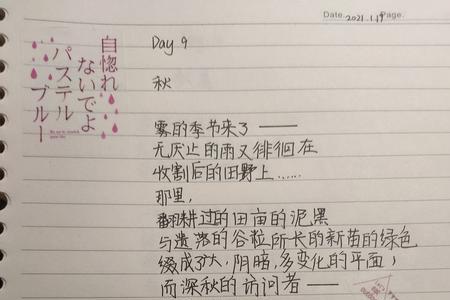 Date. 2021.1.19 Page.
自惚れ
ないでよ
パステル
ブルー
Day 9
秋
雾的季节来了——
无厌止的雨又徘徊在
收割后的田野上……
那里,
翻耕过的田亩的泥黑
与遗落的谷粒所长的新苗的绿色
缀成了大,阴暗,多变化的平面;
而深秋的访问者——